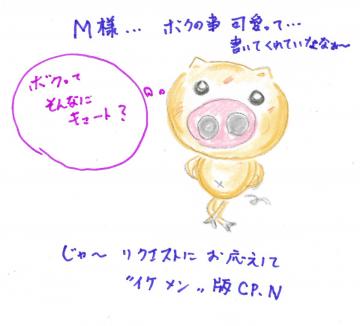 M様... ボクの事 可愛って...
書いてくれていななぁ〜
ボクって
そんなに
キュート?
じゃ〜 リクエストに お応えして
"イケメン" 版 CP.N